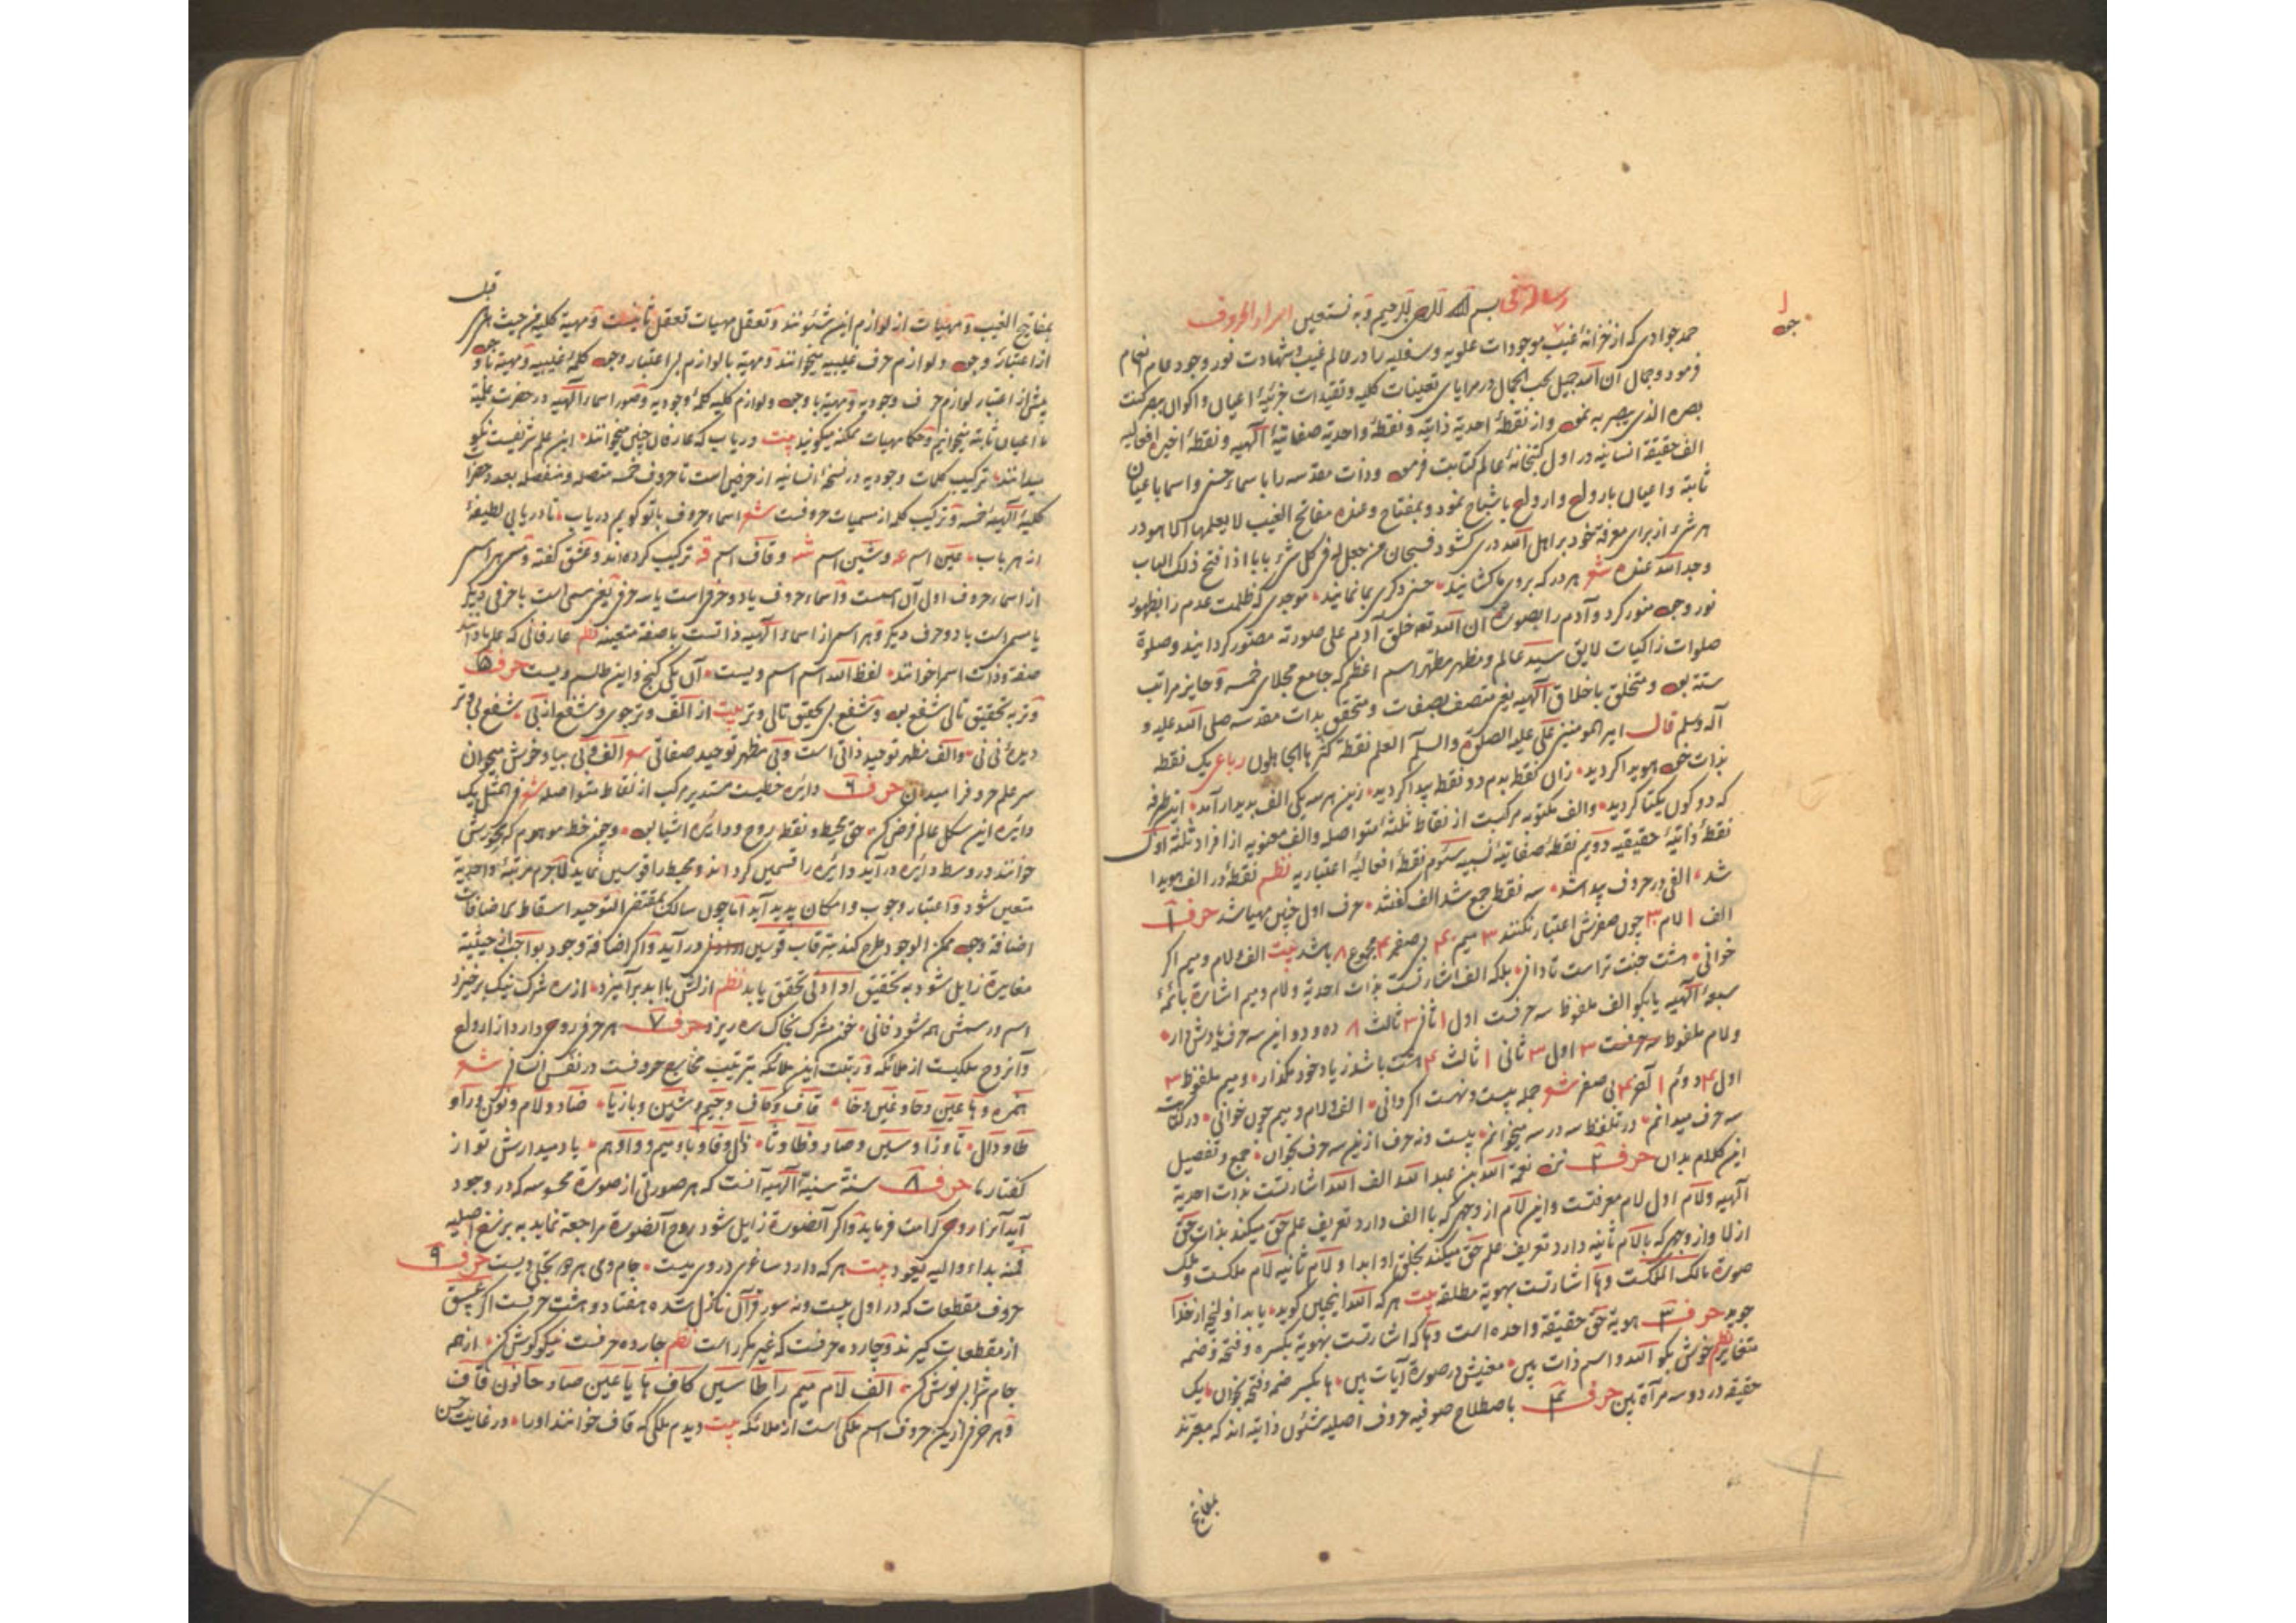 رساله فی بسم الله الرحمن الرحیم و به نستعین اسرار الحروف
حمد جوادی که از خزانهٔ غیب موجودات علویه و سفلیه را در عالم غیب و شهادت نور وجود عام انعام
فرمود و جمال ان الله جمیل یحب الجمال در مرایای تعینات کلیه و تقیدات جزئیهٔ اعیان و اکوان بمصر کنت
بصره الذی یبصر به نمود و از نقطهٔ احدیة ذاتیه و نقطهٔ واحدیة صفاتیهٔ الٓهیه و نقطهٔ اخیره افعالیه
الف حقیقة انسانیه در اول کتبخانهٔ عالم کتابت فرمود و ذات مقدسه را با سماء حسنی و اسما با عیان
ثابته و اعیان بارواح و ارواح باشباح نمود و بمفتاح و عنده مفاتح الغیب لا یعلمها الا هو در
هر شیء از برای معرفة خود بر اهل الله دری کشود فسبحان من جعل له فی کل شیء بابا اذا فتح ذلک الباب
وجد الله عنده شعر هر در که بروی ما کشانید حسن دکری بما نمایند موجدی که ظلمت عدم را بظهور
نور وجود منور کرد و آدم را بصورت ان الله تعه خلق آدم علی صورته مصور کردانید و صلوة
صلوات زاکیات لایق سید عالم و مظهر مطهر اسم اعظم که جامع مجلای خمسه و حایز مراتب
سته بود و متخلق باخلاق الٓهیه یعنی متصف بصفات و متحقق بذات مقدسه صلی الله علیه و
آله وسلم قال امیر المومنین علی علیه الصلوة والسلم العلم نقطة کثرها الجاهلون رباعی یک نقطه
بذات خود هویدا کردید زان نقطه بدم دو نقطه پیدا کردید زین هر سه یکی الف پدیدار آمد این طرفه
که دو کون یکتا کردید والف مکتوبه مرکبست از نقاط ثلثهٔ متواصله والف معنویه از افراد ثلثه اول
نقطهٔ ذاتیهٔ حقیقیه دویم نقطهٔ صفاتیهٔ نسبیه سئوم نقطهٔ افعالیهٔ اعتباریه نظم نقطهٔ در الف هویدا
شد الفی در حروف پیدا شد سه نقط جمع شد الف کفتند حرف اول چنین مهیا شد حرف ۱
الف ۱ لام ۳ چون صفرش اعتبار نکنند ۳ میم ۴ بی صفر ۴ مجموع ۸ باشد بیت الف و لام و میم اکر
خوانی هشت جنت تراست تا دانی بلکه الف اشارتست بذات احدیة و لام و میم اشارة بائمهٔ
سبعهٔ الٓهیه یا بکو الف ملفوظ سه حرفست اول ۱ ثانی ۳ ثالث ۸ ده و دو این سه حرف یادش دار
و لام ملفوظ سه حرفست ۳ اول ۳ ثانی ۱ ثالث ۴ هشت باشد ز یاد خود مکذار و میم ملفوظ ۳
اول ۴ دوئم ۱ آخر ۴ بی صفر شعر جمله بیست و نهست اکر دانی الف و لام و میم چون خوانی در کتابت
سه حرف میدانم در تلفظ سه در سه میخوانم بیست و نه حرف ازین سه حرف بخوان جمع و تفصیل
این کلام بدان حرف ۲ نزد نعمة الله بن عبد الله الف الله اشارتست بذات احدیة
الٓهیه و لام اول لام معرفتست و این لام از وجهی که با الف دارد تعریف علم حق میکند بذات حق
ازلا و از وجهی که با لام ثانیه دارد تعریف علم حق میکند بخلق او ابدا و لام ثانیه لام ملکست و ملک
صورة مالک الملکست و ها اشارتست بهویة مطلقه بیت هر که الله اینچنین کوید یابد او لنج از خدا
جوید حرف ۳ هویة حق حقیقة واحده است و ها که اشارتست بهویة بکسره و فتحه و ضمه
متغایر نظم خوش بکو الله و اسم ذات ببین معنیش در صورة آیات ببین ها بکسر ضمه و فتحه بخوان یک
حقیقه در دو سه مرآة ببین حرف ۴ باصطلاح صوفیه حروف اصلیه شئون ذاتیه اند که معبرند
بمفاتیح
بمفاتیح الغیب و مهیات از لوازم این شئونند و تعقل مهیات تعقل ثانیست و مهیة کلیه من حیث هی هی قبل
از اعتبار وجود و لوازم حرف غیبیه میخوانند و مهیة با لوازم بی اعتبار وجود کلمهٔ غیبیه و مهیة با وجود
پیش از اعتبار لوازم حرف وجودیه و مهیة با وجود و لوازم کلیه کلمهٔ وجودیه و صور اسماء الٓهیه در حضرت علمیه
ما اعیان ثابته میخوانیم و حکما مهیات ممکنه میکویند بیت دریاب که عارفان چنین میخوانند این علم شریفست نکو
میدانند ترکیب کلمات وجودیه در نسخهٔ انسانیه از حرفی است تا حروف خمسه متصله و منفصله بعدد حضرات
کلیهٔ الٓهیهٔ خمسه و ترکیب کلمه از مسمیات حروفست شعر اسماء حروف با تو کویم دریاب تا دریابی لطیفهٔ
از هر باب عین اسم ع و شین اسم ش و قاف اسم ق ترکیب کرده اند و عشق کفته و مسمی هر اسم
از اسماء حروف اول آن اسمست و اسماء حروف یا دو حرف است یا سه حرف یعنی مسمی است با حرفی دیکر
یا مسمی است با دو حرف دیکر و هر اسم از اسماء الٓهیه ذاتست با صفة متعینه نظم عارفانی که علم ما دانند
صفة و ذات اسم را خوانند لفظ الله اسم اسم ویست آن یکی کنج و این طلسم ویست حرف ۵
وتر به تحقیق تالی شفع بود و شفع بی تحقیق تالی وتر بیت از الف وتر جوی و شفع از بی شفع بی وتر
دیدهٔ نی نی والف مظهر توحید ذاتی است و بی مظهر توحید صفاتی شعر الف و بی بیا و خوش میخوان
سر علم حروف را میدان حرف ۶ دائره خطیست مستدیر مرکب از نقاط متواصله شعر فی المثل یک
دائره این شکل عالم فرض کن حق محیط و نقطه روح و دائره اشیا بود و چون خط موهوم که محورش
خوانند در وسط دائره در آید دائره را قسمین کرداند و محیط را قوسین نماید لاجرم مرتبهٔ واحدیة
متعین شود و اعتبار وجوب و امکان پدید آید اما چون سالک بمقتضی التوحید اسقاط الاضافات
اضافة وجود ممکن الوجود طرح کند سر قاب قوسین در آید و اکر اضافة وجود بواجب از حیثیة
مغایرة زایل شود به تحقیق او ادنی تحقق یابد نظم ازلش با ابد بر آمیزد از ره شرک نیک برخیزد
اسم و رسمش همه شود فانی خون مشرک بخاک ره ریزد حرف ۷ هر حرفی روحی دارد از ارواح
و آنروح ملکیست از ملائکه و رتبت این ملائکه بترتیب مخارج حروفست در نفس انسانی شعر
همزه و ها عین و حا و غین و خا قاف و کاف و جیم و شین و باز یا ضاد و لام و نون و را و
طا و دال تا و زا و سین و صاد و ظا و ثا ذال و فا و با و میم و واو هم یاد میدارش تو از
کفتار ما حرف ۸ سنة سنیهٔ الٓهیه آنست که هر صورتی از صورة محسوسه که در وجود
آید آنرا روحی کرامت فرماید و اکر آنصورة زایل شود روح آنصورة مراجعة نماید به برزخ اصلیه
فمنه بداء والیه یعود بیت هر که دارد ساغری در وی میست جام و می هر دو تجلی ویست حرف ۹
حروف مقطعات که در اول بیست و نه سور قرآن نازل شده هفتاد و هشت حرفست اکر عسق
از مقطعات کیرند و چارده حرفست که غیر مکرر است نظم چارده حرفست نیکو کوش کن از هم
جام شرابی نوش کن الف لام میم را طا سین کاف ها یا عین صاد حا نون قاف
و هر حرفی ازین حروف اسم ملکی است از ملائکه بیت دیدم ملکی که قاف خوانند او را در غایت حسن